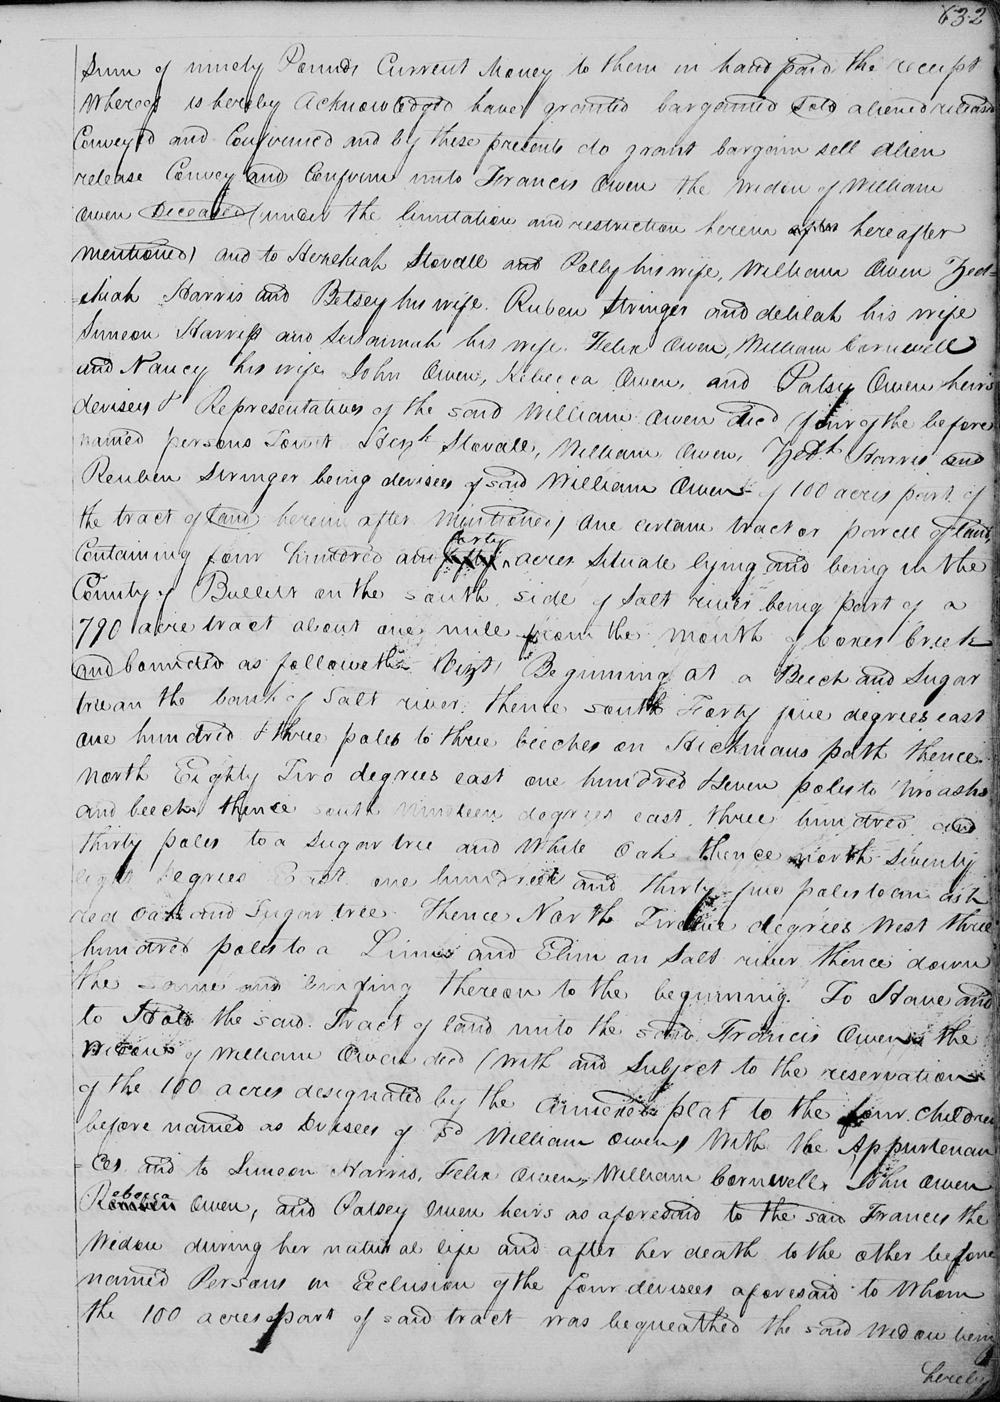 632
Sum of ninety Pounds Current Money to them in hand paid the receipt
Whereof is hereby Acknowledged have granted bargained Sold aliened released
Conveyed and Confirmed and by these presents do grant bargain sell alien
release Convey and Confirm unto Francis Owen the widow of William
Owen Deceased (under the limitation and restriction herein after hereafter
mentioned) and to Hezekiah Stovall and Polly his wife, William Owen Zed=
=ekiah Harris and Betsey his wife. Ruben Stringer and delilah his wife
Simeon Harriss and Susannah his wife. Felix Owen, William Cornwell
and Nancy his wife John Owen, Rebecca Owen, and Patsy Owen heirs
devisees & Representatives of the said William Owen decd (four of the before
named persons Towit Hezh Stovall, William Owen, Zedh Harris and
Reuben Stringer being devisees of said William Owen of 100 acres part of
the tract of land herein after Mentioned) One certain tract or parcell of land
Containing four hundred and forty acres Situate lying and being in the
County of Bullitt on the south side of Salt river being part of a
790 acre tract about one mile from the mouth of Coxes Creek
and bounded as followeth Vizt Beginning at a Beech and Sugar
tree on the bank of Salt river. thence south Forty five degrees east
one hundred & three poles to three beeches on Hickmans path thence
North Eighty Two degrees east one hundred & seven poles to Two ashes
and beech thence south Nineteen degrees east three hundred and
thirty poles to a Sugar tree and White Oak thence north Seventy
eight degrees East one hundred and thirty five poles to an ash
red oak and Sugar tree. Thence North Twelve degrees West three
hundred poles to a Linn and Elm on Salt river thence down
the same and binding thereon to the beginning. To Have and
to Hold the said Tract of land unto the said Francis Owen the
Widow of William Owen decd (With and Subject to the reservation
of the 100 acres designated by the Annexed plat to the four children
before named as Devisees of sd William Owen) With the Appurtenan
=ces and to Simeon Harris, Felix Owen, William Cornwell, John Owen
Rebecca Owen, and Patsey Owen heirs as aforesaid to the said Frances the
Widow during her natural life and after her death to the other before
named Persons in Exclusion of the four devisees aforesaid to Whom
the 100 acres part of said tract was bequeathed the said Widow being
hereby